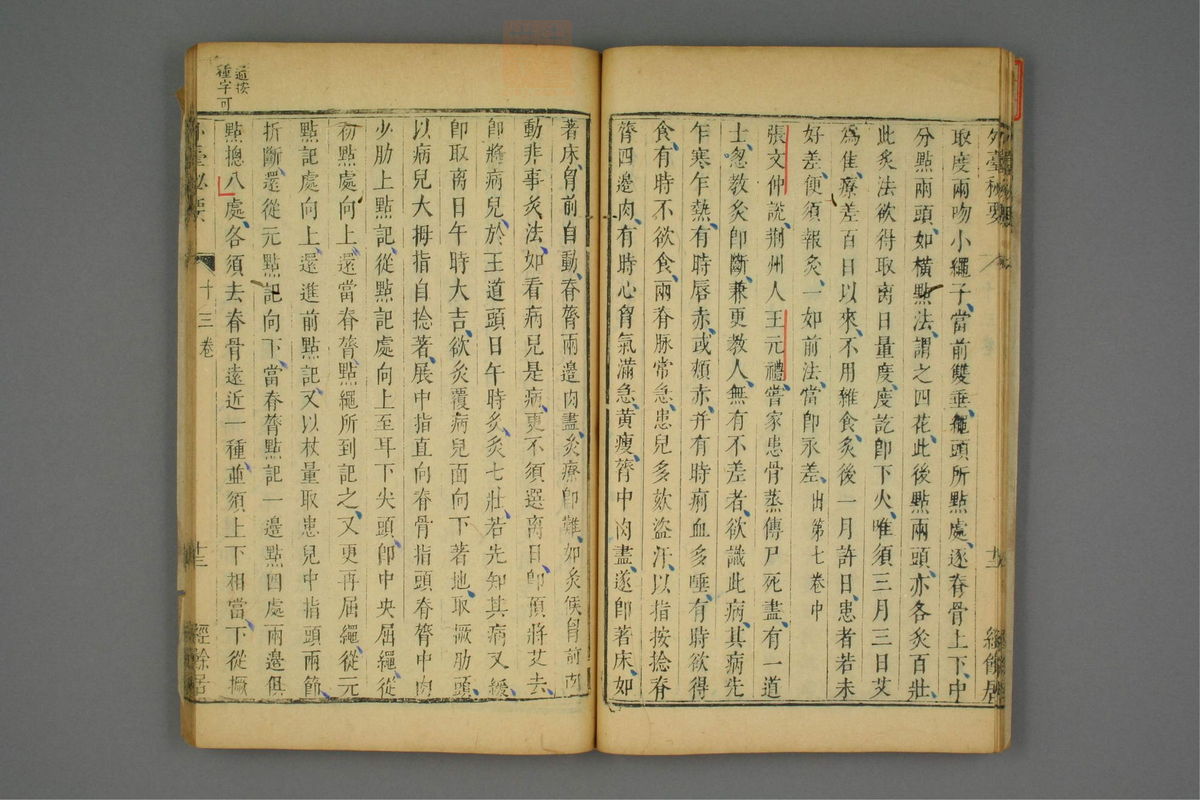 外臺秘要
十三
經餘居
取度兩吻小繩子當前雙垂繩頭所點處逐脊骨上下中
分點兩頭如橫點法謂之四花此後點兩頭亦各灸百壯
此灸法欲得取离日量度度訖即下火唯須三月三日艾
爲佳療差百日以來不用雜食灸後一月許日患者若未
好差便須報灸一如前法當即永差出第七卷中
張文仲說荆州人王元禮嘗家患骨蒸傳尸死盡有一道
士忽教灸即斷兼更教人無有不差者欲識此病其病先
乍寒乍熱有時唇赤或頰赤并有時痢血多唾有時欲得
食有時不欲食兩脊脉常急患兒多欬盜汗以指按捻脊
膂四邊肉有時心胷氣滿急黄瘦膂中肉盡遂即著床如
著床胷前自動脊膂兩邊肉盡灸療即難如灸候胷前肉
動非事灸法如看病兒是病更不須選离日即預將艾去
即將病兒於王道頭日午時灸灸七壯若先知其病又緩
即取离日午時大吉欲灸覆病兒面向下著地取撅肋頭
以病兒大拇指自捻著展中指直向脊骨指頭脊膂中肉
少肋上點記從點記處向上至耳下尖頭即中央屈繩從
初點處向上還當脊膂點繩所到記之又更再屈繩從元
點記處向上還進前點記又以杖量取患兒中指頭兩節
折斷還從元點記向下當脊膂點記一邊點四處兩邊俱
點摠八處各須去脊骨遠近一種並須上下相當下從撅
外臺秘要
十三卷
十三
經餘居
按
種字可